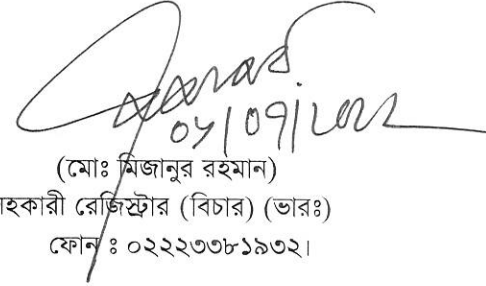 ০৮/০৭/২০২২
(মোঃ মিজানুর রহমান)
সহকারী রেজিস্ট্রার (বিচার) (ভারঃ)
ফোন ঃ ০২২২৩৩৮১৯৩২।